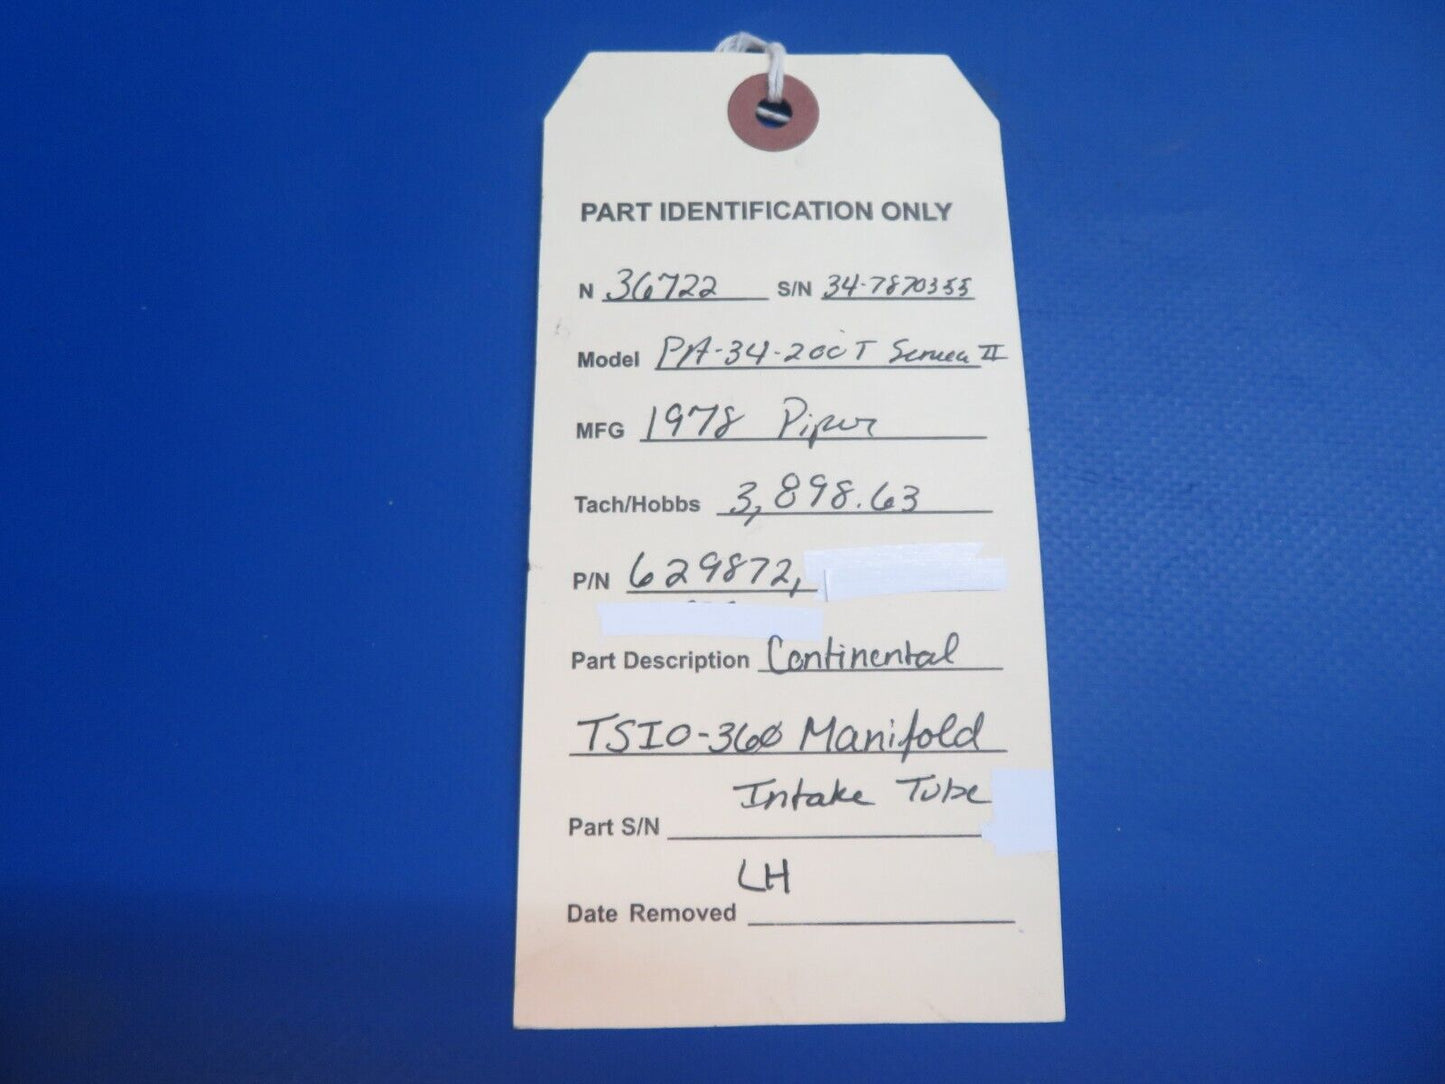 PART IDENTIFICATION ONLY
N 36722 S/N 34-7870355
Model PA-34-200T Seneca II
MFG 1978 Piper
Tach/Hobbs 3,898.63
P/N 629872,
Part Description Continental
TSIO-360 Manifold
Intake Tube
Part S/N
LH
Date Removed